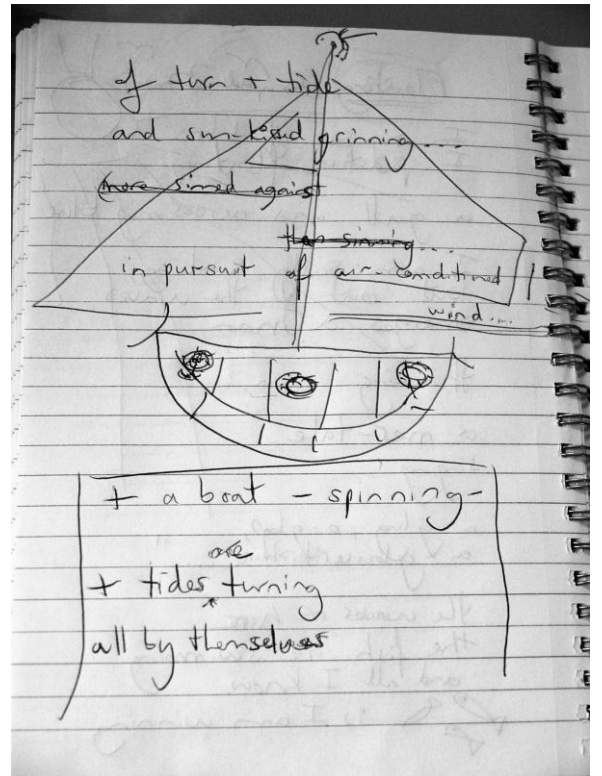 of turn + tide
and sun-kissed grinning...
(more sinned against
than sinning...
in pursuit of air-conditioned
wind...
+ a boat - spinning -
are
+ tides turning
all by themselves